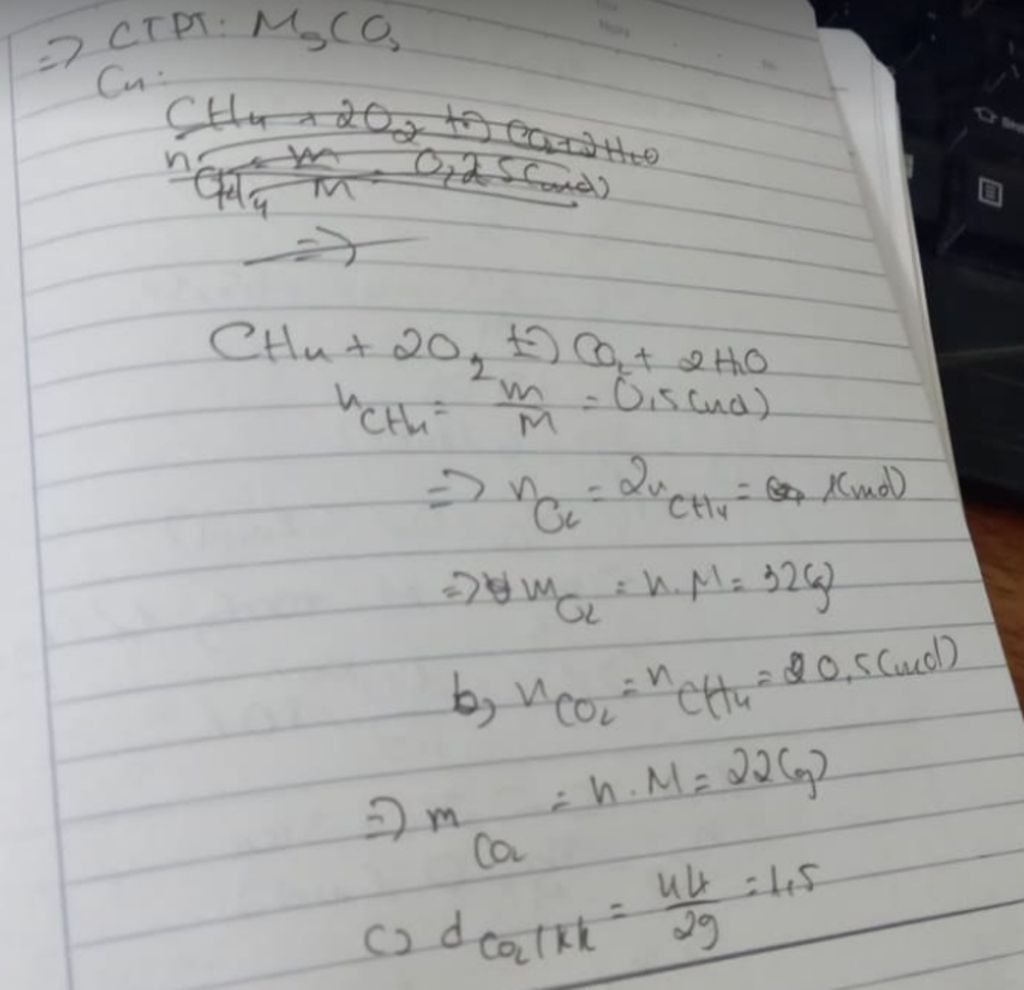 => CTPT: MgCO3
C4:
CH4 + 2O2 t°) CO2 + 2H2O
nCH4 = m/M = 0,25(mol)
=>
CH4 + 2O2 t°) CO2 + 2H2O
nCH4 = m/M = 0,5(mol)
=> nO2 = 2nCH4 = 1(mol)
=> mO2 = n.M = 32(g)
b, nCO2 = nCH4 = 0,5(mol)
=> mCO2 = n.M = 22(g)
c) dCO2/kk = 44/29 = 1,5